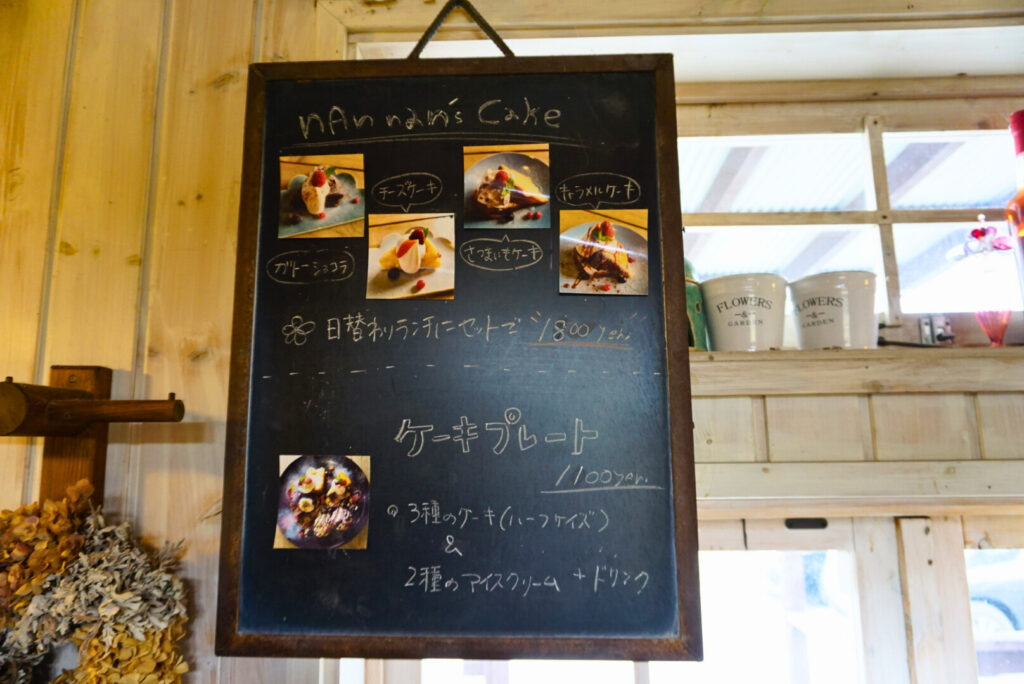 nAn nam's Cake
チーズケーキ
キャラメルケーキ
ガトーショコラ
さつまいもケーキ
日替わりランチにセットで "1800yen"
ケーキプレート
1100yen.
3種のケーキ(ハーフサイズ)
&
2種のアイスクリーム + ドリンク
FLOWERS
&
GARDEN
FLOWERS
&
GARDEN